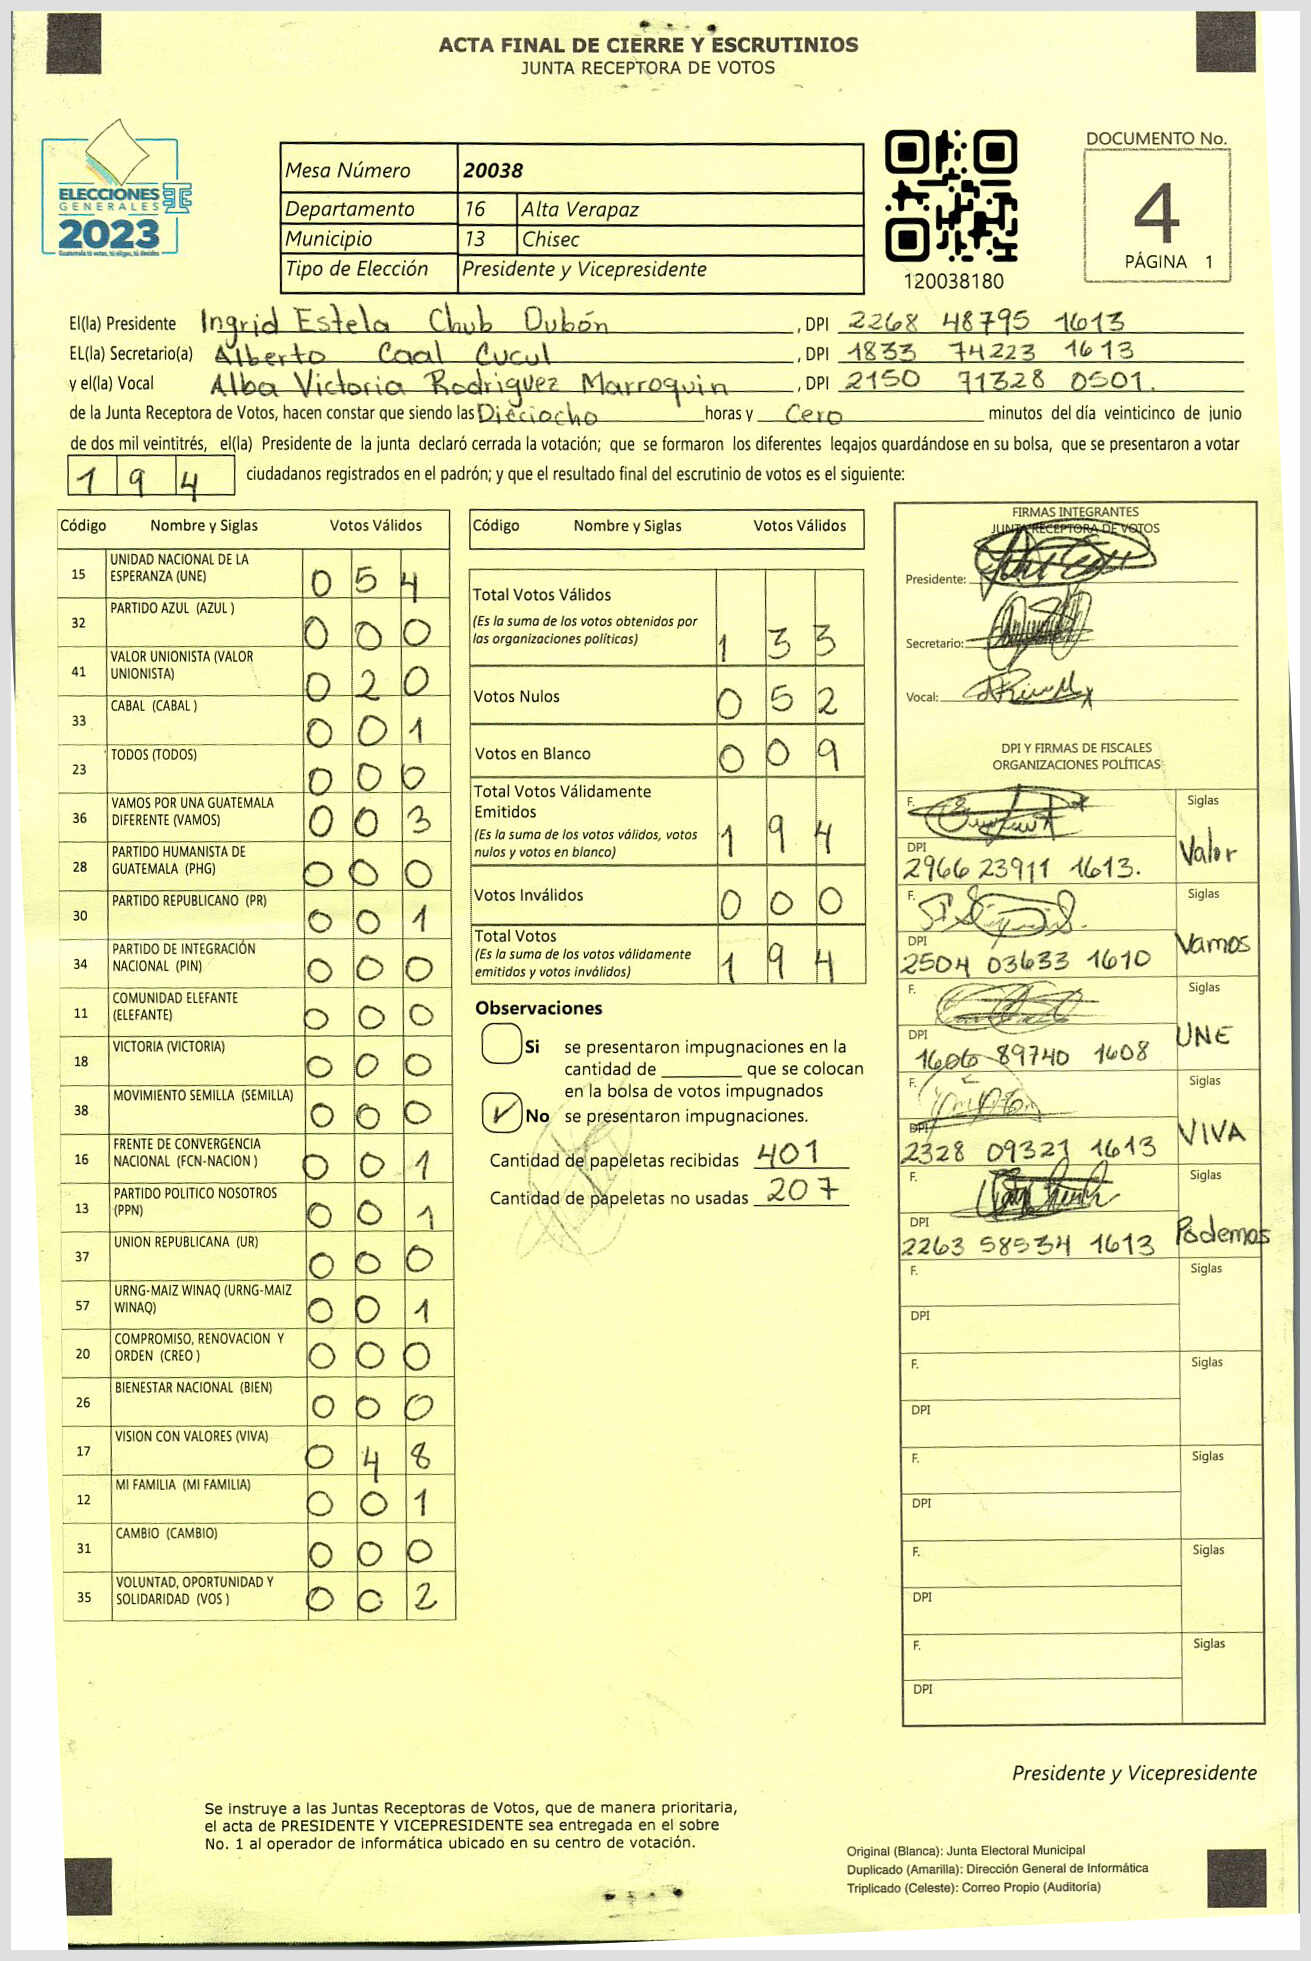 ACTA FINAL DE CIERRE Y ESCRUTINIOS
JUNTA RECEPTORA DE VOTOS
ELECCIONES
GENERALES
2023
Mesa Número 20038
Departamento 16 Alta Verapaz
Municipio 13 Chisec
Tipo de Elección Presidente y Vicepresidente
120038180
DOCUMENTO No.
4
PÁGINA 1
El(la) Presidente Ingrid Estela Chub Dubón , DPI 2268 48795 1613
EL(la) Secretario(a) Alberto Caal Cucul , DPI 1833 74223 1613
y el(la) Vocal Alba Victoria Rodriguez Marroquin , DPI 2150 71328 0501.
de la Junta Receptora de Votos, hacen constar que siendo las Dieciocho horas y Cero minutos del día veinticinco de junio
de dos mil veintitrés, el(la) Presidente de la junta declaró cerrada la votación; que se formaron los diferentes legajos guardándose en su bolsa, que se presentaron a votar
194 ciudadanos registrados en el padrón; y que el resultado final del escrutinio de votos es el siguiente:
Código Nombre y Siglas Votos Válidos
15 UNIDAD NACIONAL DE LA
ESPERANZA (UNE) 054
32 PARTIDO AZUL (AZUL ) 000
41 VALOR UNIONISTA (VALOR
UNIONISTA) 020
33 CABAL (CABAL ) 001
23 TODOS (TODOS) 000
36 VAMOS POR UNA GUATEMALA
DIFERENTE (VAMOS) 003
28 PARTIDO HUMANISTA DE
GUATEMALA (PHG) 000
30 PARTIDO REPUBLICANO (PR) 001
34 PARTIDO DE INTEGRACIÓN
NACIONAL (PIN) 000
11 COMUNIDAD ELEFANTE
(ELEFANTE) 000
18 VICTORIA (VICTORIA) 000
38 MOVIMIENTO SEMILLA (SEMILLA) 000
16 FRENTE DE CONVERGENCIA
NACIONAL (FCN-NACION ) 001
13 PARTIDO POLITICO NOSOTROS
(PPN) 001
37 UNION REPUBLICANA (UR) 000
57 URNG-MAIZ WINAQ (URNG-MAIZ
WINAQ) 001
20 COMPROMISO, RENOVACION Y
ORDEN (CREO ) 000
26 BIENESTAR NACIONAL (BIEN) 000
17 VISION CON VALORES (VIVA) 048
12 MI FAMILIA (MI FAMILIA) 001
31 CAMBIO (CAMBIO) 000
35 VOLUNTAD, OPORTUNIDAD Y
SOLIDARIDAD (VOS ) 002
Código Nombre y Siglas Votos Válidos
Total Votos Válidos
(Es la suma de los votos obtenidos por
las organizaciones políticas) 133
Votos Nulos 052
Votos en Blanco 009
Total Votos Válidamente
Emitidos
(Es la suma de los votos válidos, votos
nulos y votos en blanco) 194
Votos Inválidos 000
Total Votos
(Es la suma de los votos válidamente
emitidos y votos inválidos) 194
Observaciones
Si se presentaron impugnaciones en la
cantidad de ________ que se colocan
en la bolsa de votos impugnados
No se presentaron impugnaciones.
Cantidad de papeletas recibidas 401
Cantidad de papeletas no usadas 207
FIRMAS INTEGRANTES
JUNTA RECEPTORA DE VOTOS
Presidente:
Secretario:
Vocal:
DPI Y FIRMAS DE FISCALES
ORGANIZACIONES POLÍTICAS
F. Siglas
Valor
DPI
2966 23911 1613.
F. Siglas
Vamos
DPI
2504 03633 1610
F. Siglas
UNE
DPI
1606 89740 1608
F. Siglas
VIVA
DPI
2328 09321 1613
F. Siglas
Podemos
DPI
2263 58534 1613
F. Siglas
DPI
F. Siglas
DPI
F. Siglas
DPI
F. Siglas
DPI
F. Siglas
DPI
Presidente y Vicepresidente
Se instruye a las Juntas Receptoras de Votos, que de manera prioritaria,
el acta de PRESIDENTE Y VICEPRESIDENTE sea entregada en el sobre
No. 1 al operador de informática ubicado en su centro de votación.
Original (Blanca): Junta Electoral Municipal
Duplicado (Amarilla): Dirección General de Informática
Triplicado (Celeste): Correo Propio (Auditoría)